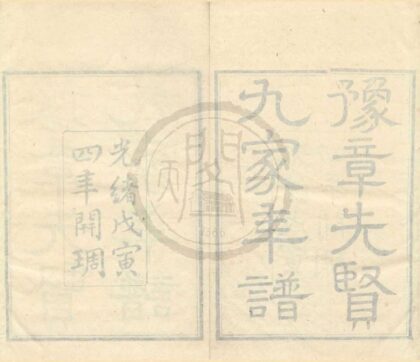 豫章先賢
九家年譜
光緒戊寅
四年開琱